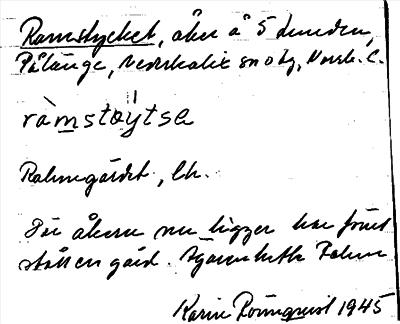 Ramstycket, åker å S Lunden,
Pålänge, Nederkalix sn o tg, Norrb. l.
ràmstøytsa
Rahmgärdet, lh.
där åkern nu ligger har förut
stått en gård. Ägaren hette Rahm
Karin Rönnqvist 1945